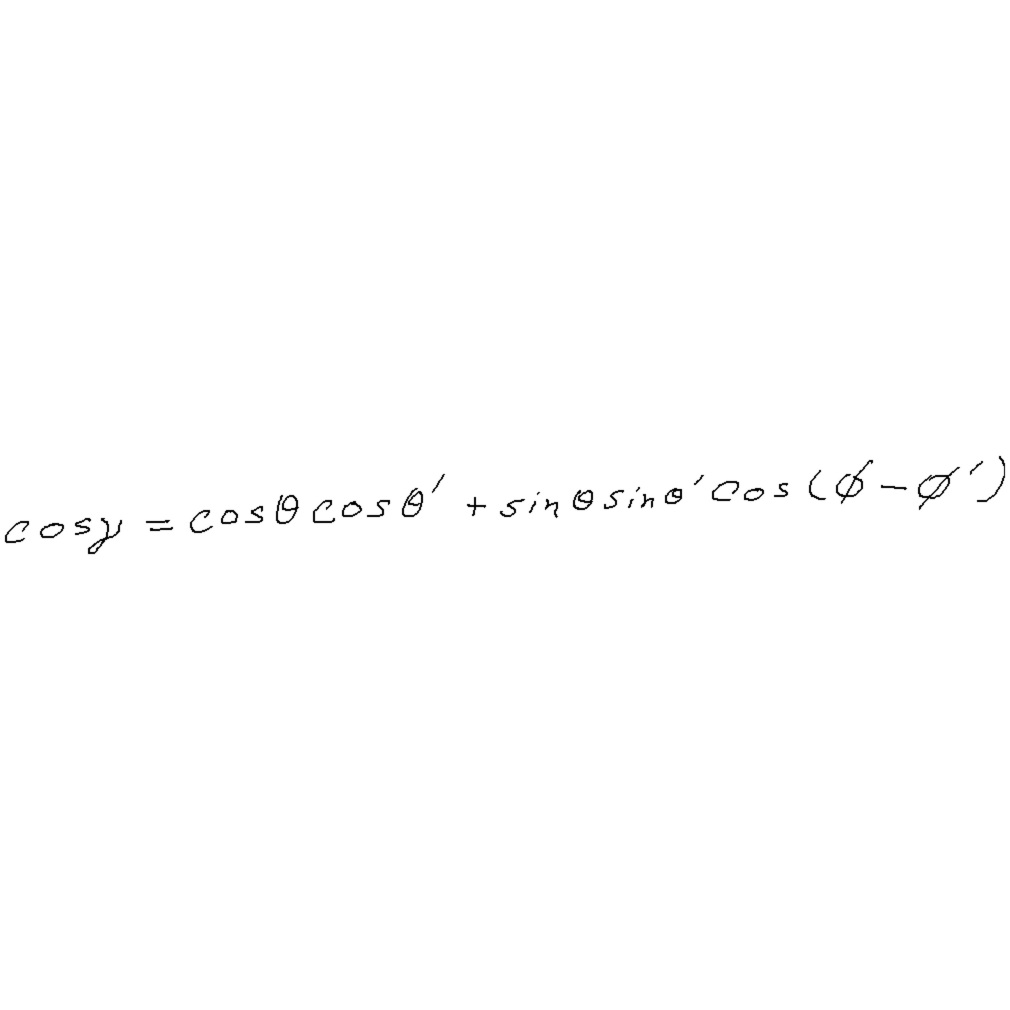 cosγ = cosθ cosθ' + sinθ sinθ' cos(φ - φ')